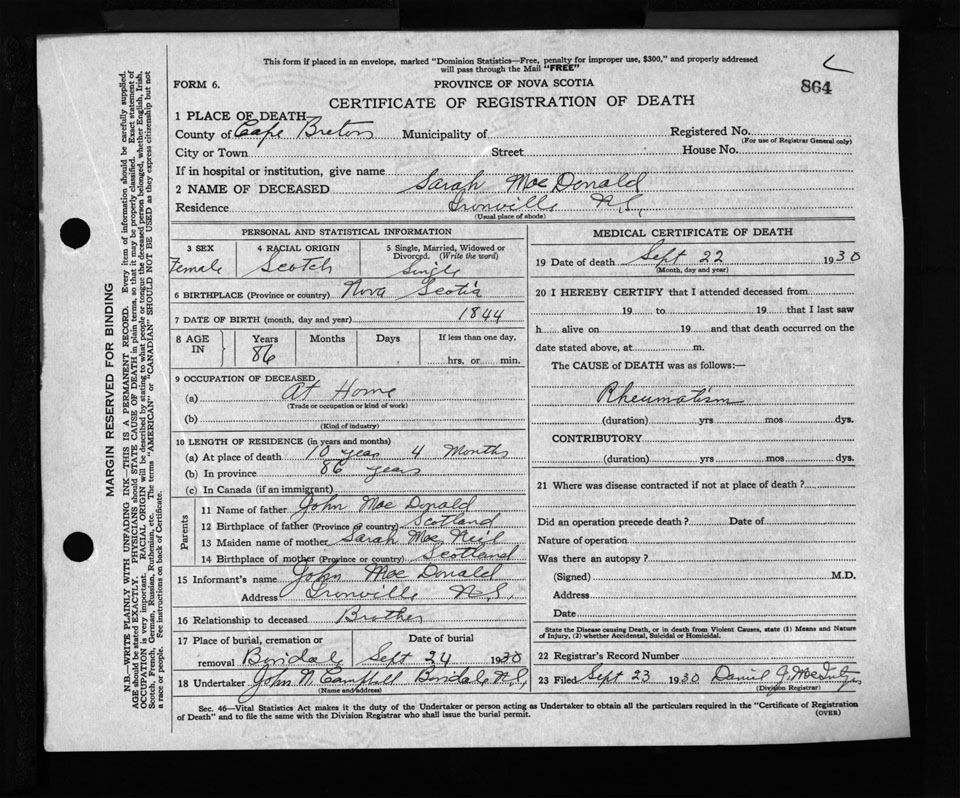 This form if placed in an envelope, marked "Dominion Statistics—Free, penalty for improper use, $300," and properly addressed
will pass through the Mail "FREE"
FORM 6.
PROVINCE OF NOVA SCOTIA
864
CERTIFICATE OF REGISTRATION OF DEATH
1 PLACE OF DEATH
County of Cape Breton Municipality of Registered No.
(For use of Registrar General only)
City or Town Street House No.
If in hospital or institution, give name
2 NAME OF DECEASED Sarah MacDonald
Residence Ironville N.S.
(Usual place of abode)
PERSONAL AND STATISTICAL INFORMATION
3 SEX 4 RACIAL ORIGIN 5 Single, Married, Widowed or
Divorced. (Write the word)
Female Scotch Single
6 BIRTHPLACE (Province or country) Nova Scotia
7 DATE OF BIRTH (month, day and year) 1844
8 AGE Years Months Days If less than one day.
IN 86 hrs. or min.
9 OCCUPATION OF DECEASED
(a) At Home
(Trade or occupation or kind of work)
(b)
(Kind of industry)
10 LENGTH OF RESIDENCE (in years and months)
(a) At place of death 10 year 4 Months
(b) In province 86 years
(c) In Canada (if an immigrant)
Parents
11 Name of father John MacDonald
12 Birthplace of father (Province or country) Scotland
13 Maiden name of mother Sarah MacNeil
14 Birthplace of mother (Province or country) Scotland
15 Informant's name John MacDonald
Address Ironville N.S.
16 Relationship to deceased Brother
17 Place of burial, cremation or Date of burial
removal Boisdale Sept 24 1930
18 Undertaker John N Campbell Boisdale N.S.
(Name and address)
MEDICAL CERTIFICATE OF DEATH
19 Date of death Sept 22 1930
(Month, day and year)
20 I HEREBY CERTIFY that I attended deceased from
19 to 19 that I last saw
h alive on 19 and that death occurred on the
date stated above, at m.
The CAUSE of DEATH was as follows:—
Rheumatism
(duration) yrs mos dys.
CONTRIBUTORY
(duration) yrs mos dys.
21 Where was disease contracted if not at place of death?
Did an operation precede death? Date of
Nature of operation
Was there an autopsy?
(Signed) M.D.
Address
Date
State the Disease causing Death, or in death from Violent Causes, state (1) Means and Nature
of Injury, (2) whether Accidental, Suicidal or Homicidal.
22 Registrar's Record Number
23 Filed Sept 23 1930 Daniel J. MacIntyre
(Division Registrar)
Sec. 46—Vital Statistics Act makes it the duty of the Undertaker or person acting as Undertaker to obtain all the particulars required in the "Certificate of Registration
of Death" and to file the same with the Division Registrar who shall issue the burial permit.
(OVER)
MARGIN RESERVED FOR BINDING
N.B.—WRITE PLAINLY WITH UNFADING INK—THIS IS A PERMANENT RECORD. Every item of information should be carefully supplied.
AGE should be stated EXACTLY. PHYSICIANS should STATE CAUSE OF DEATH in plain terms, so that it may be properly classified. Exact statement of
OCCUPATION is very important. RACIAL ORIGIN will be described by stating to what people or tongue the deceased person belonged, whether English, Irish,
Scotch, French, German, Russian, Ruthenian, etc. The terms "AMERICAN" or "CANADIAN" SHOULD NOT BE USED as they express citizenship but not
a race or people. See instructions on back of Certificate.